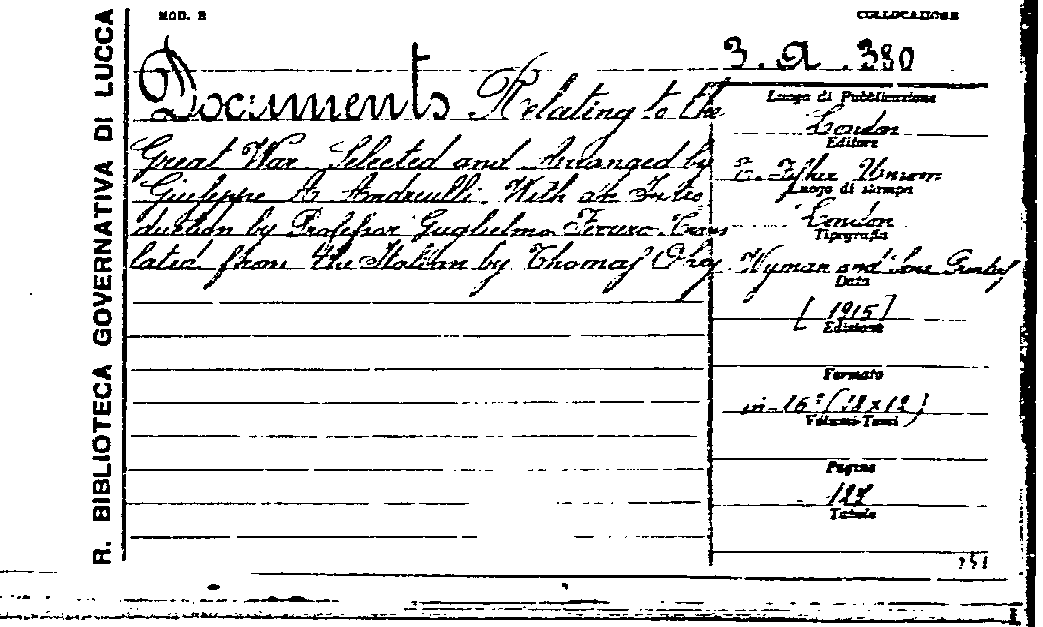 R. BIBLIOTECA GOVERNATIVA DI LUCCA
MOD. B
COLLOCAZIONE
3. a. 380
Documents Relating to the
Great War Selected and Arranged by
Giuseppe A. Andreulli. With an Intro
duction by Professor Guglielmo Ferrero. Trans
lated from the Italian by Thomas Okey.
Luogo di Pubblicazione
London
Editore
T. Fisher Unwin
Luogo di stampa
London
Tipografia
Wyman and Sons
Data
[1915]
Edizione
Formato
in-16° (18x12)
Volumi-Tomi
Pagine
Tavole